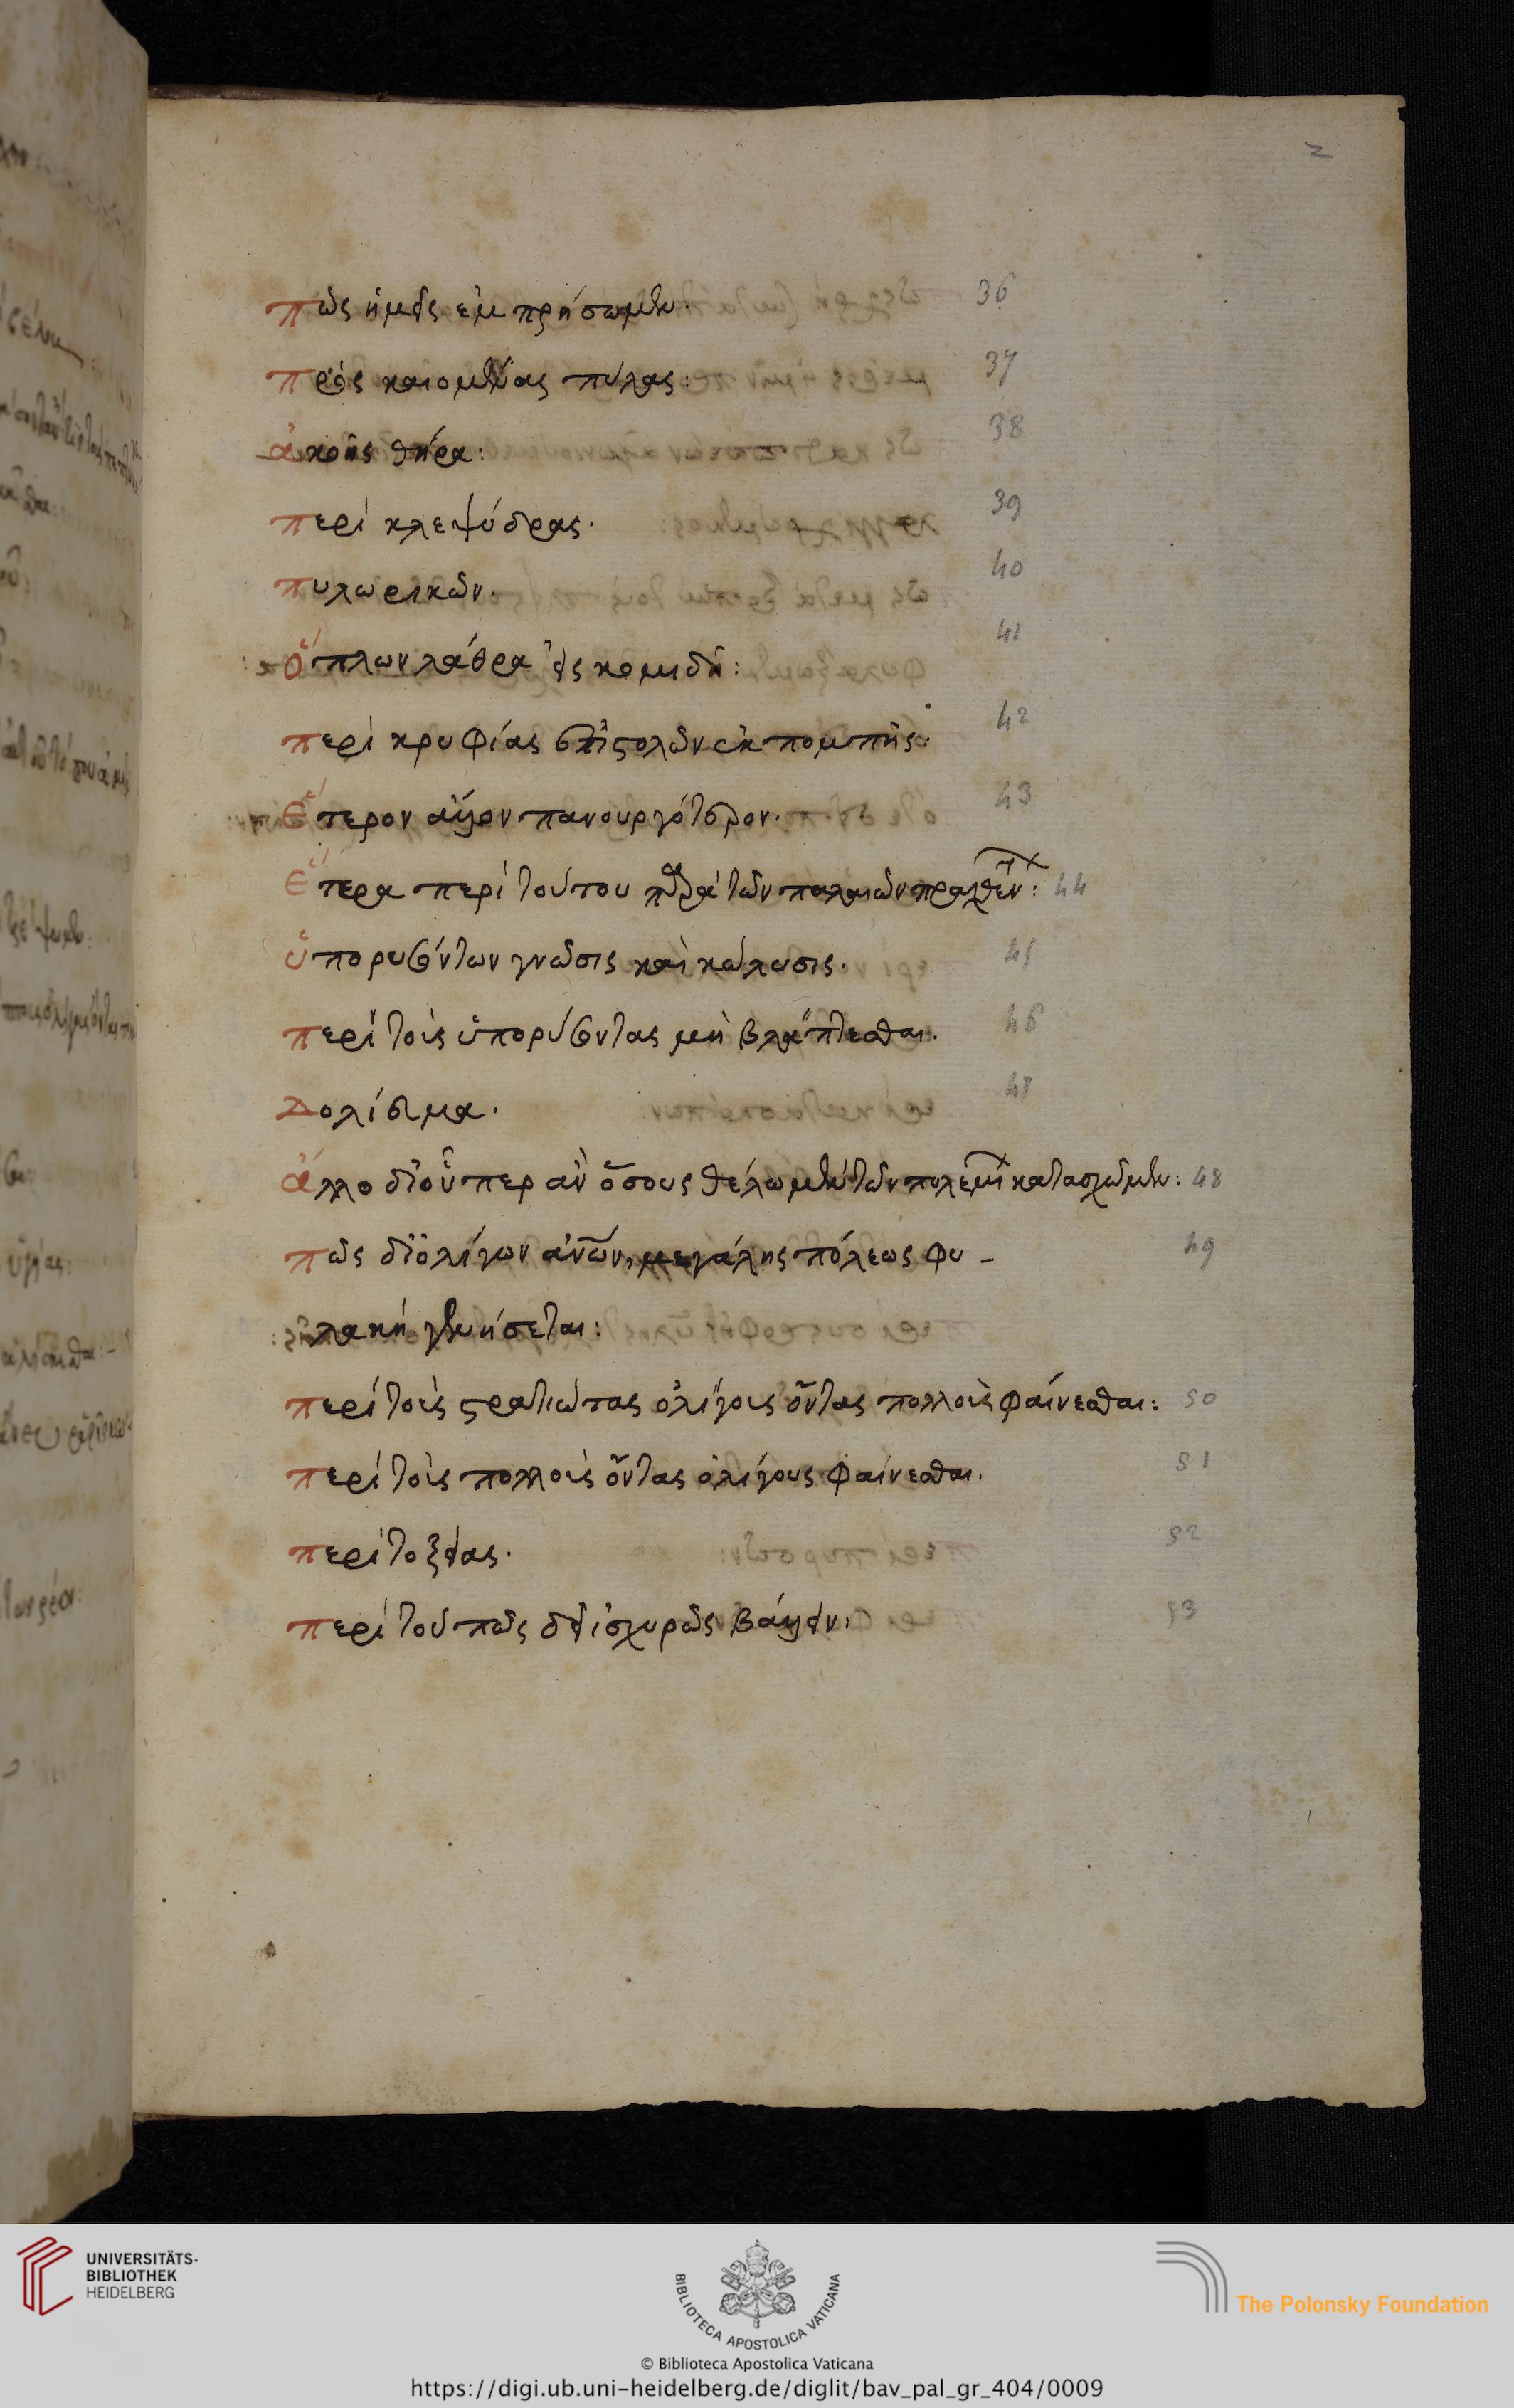 2
πῶς ἡμεῖς ἐμπρήσωμεν· 36
πρὸς καιομένας πύλας: 37
ἀκοῆς θήρα: 38
περὶ κλεψύδρας· 39
πυλωρικῶν· 40
ὅπλων λάθρα εἰσκομιδή: 41
περὶ κρυφίας ἐπιστολῶν ἐκπομπῆς: 42
Ἕτερον ἄλλον πανουργότερον· 43
Ἕτερα περὶ τούτου παρὰ τῶν παλαιῶν πραχθέν: 44
ὑπορυσσόντων γνῶσις καὶ κώλυσις· 45
περὶ τοὺς ὑπορύσσοντας μὴ βλάπτεσθαι. 46
Δολίευμα. 47
ἄλλο δι' οὗπερ ἂν ὅσους θέλωμεν τῶν πολεμί κατασχῶμεν: 48
πῶς δι' ὀλίγων ἀνῶν, μεγάλης πόλεως φυ- 49
λακὴ γενήσεται:
περὶ τοὺς στρατιώτας ὀλίγους ὄντας πολλοὺς φαίνεσθαι: 50
περὶ τοὺς πολλοὺς ὄντας ὀλίγους φαίνεσθαι. 51
περὶ τοξείας. 52
περὶ τοῦ πῶς δεῖ ἰσχυρῶς βάλλειν: 53
UNIVERSITÄTS-
BIBLIOTHEK
HEIDELBERG
BIBLIOTECA APOSTOLICA VATICANA
The Polonsky Foundation
© Biblioteca Apostolica Vaticana
https://digi.ub.uni-heidelberg.de/diglit/bav_pal_gr_404/0009